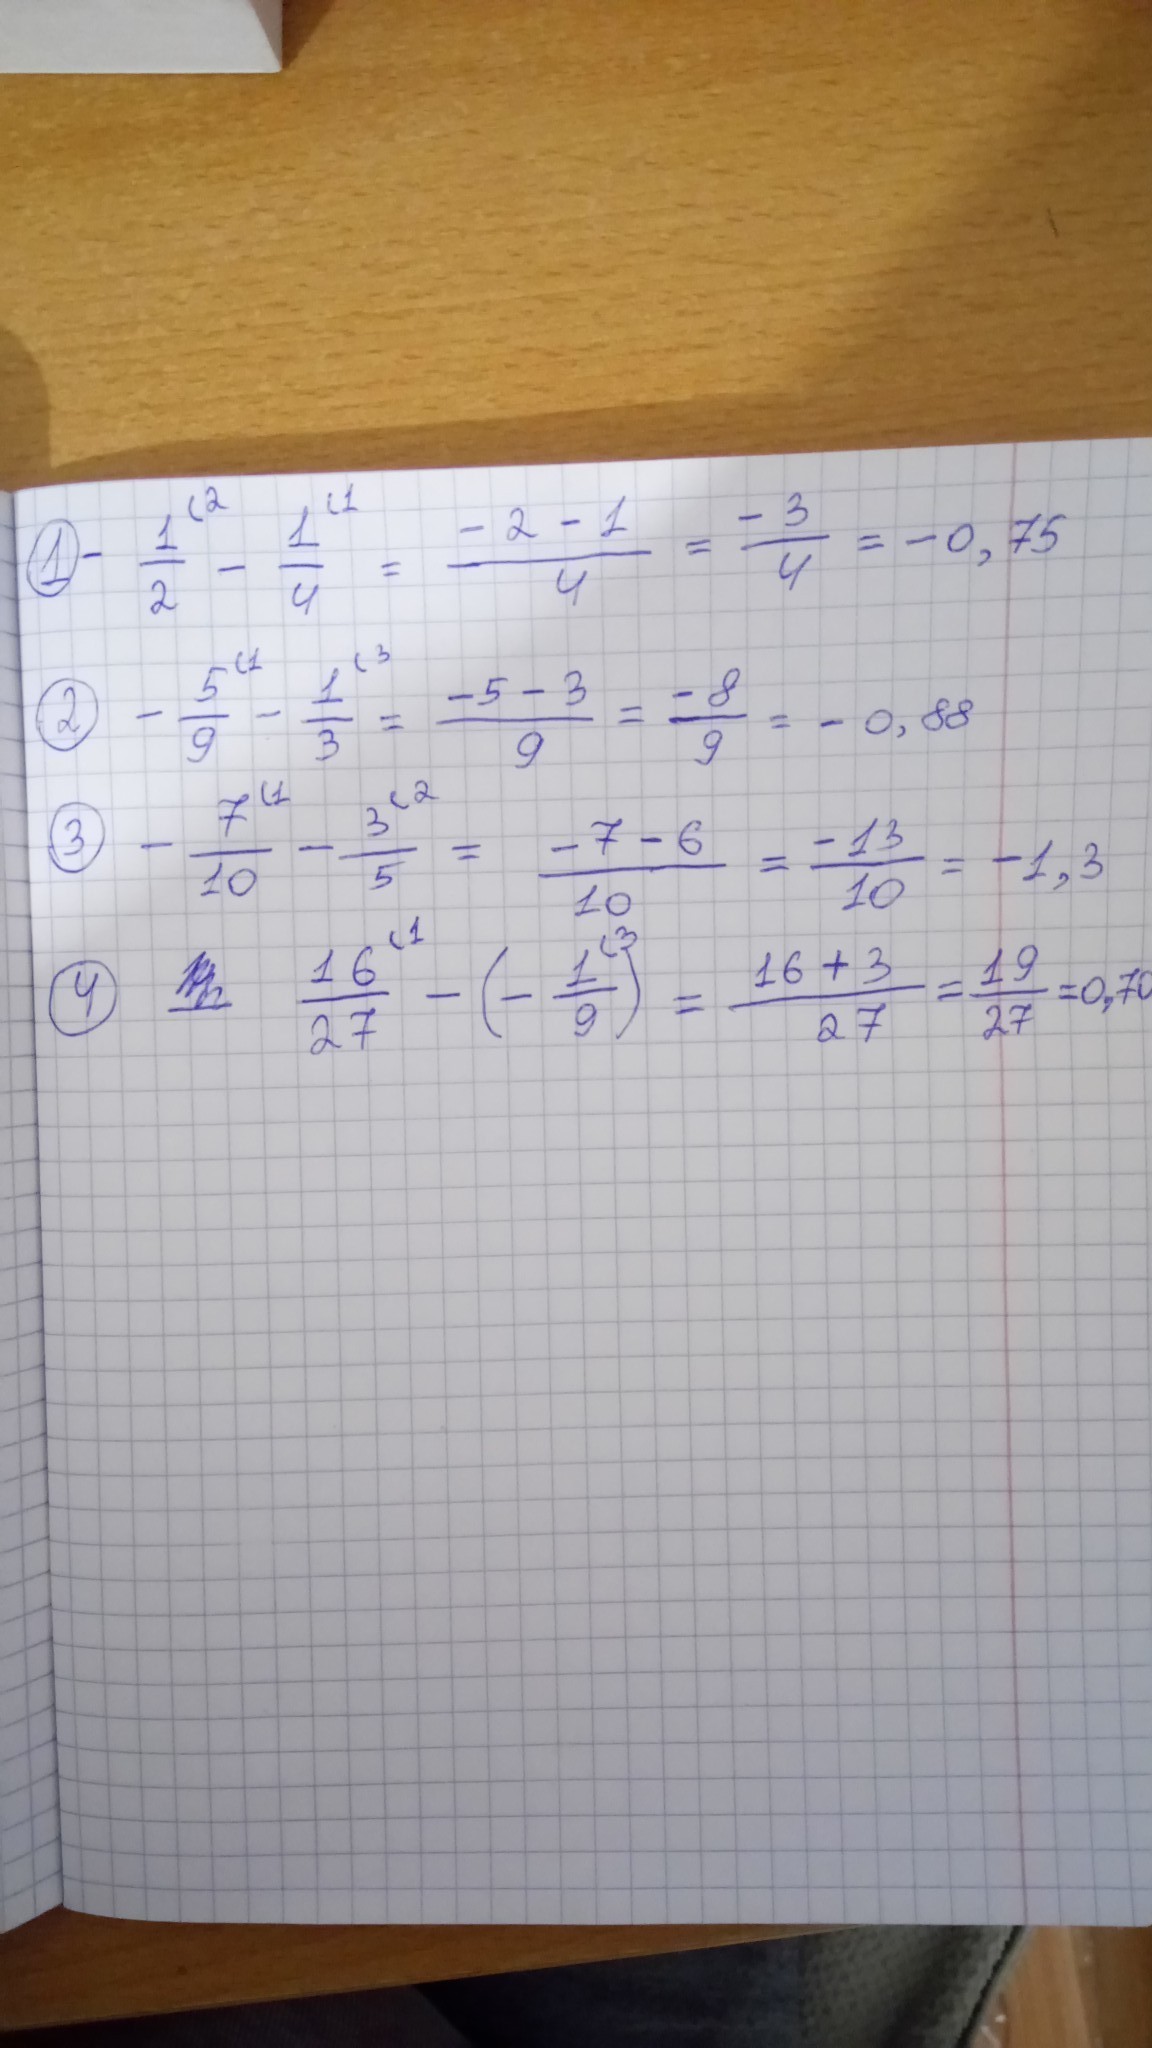 ① - 1/2 (2 - 1/4 (1 = -2-1/4 = -3/4 = -0,75
② - 5/9 (1 - 1/3 (3 = -5-3/9 = -8/9 = -0,88
③ - 7/10 (1 - 3/5 (2 = -7-6/10 = -13/10 = -1,3
④ 16/27 (1 - (-1/9 (3) = 16+3/27 = 19/27 = 0,70